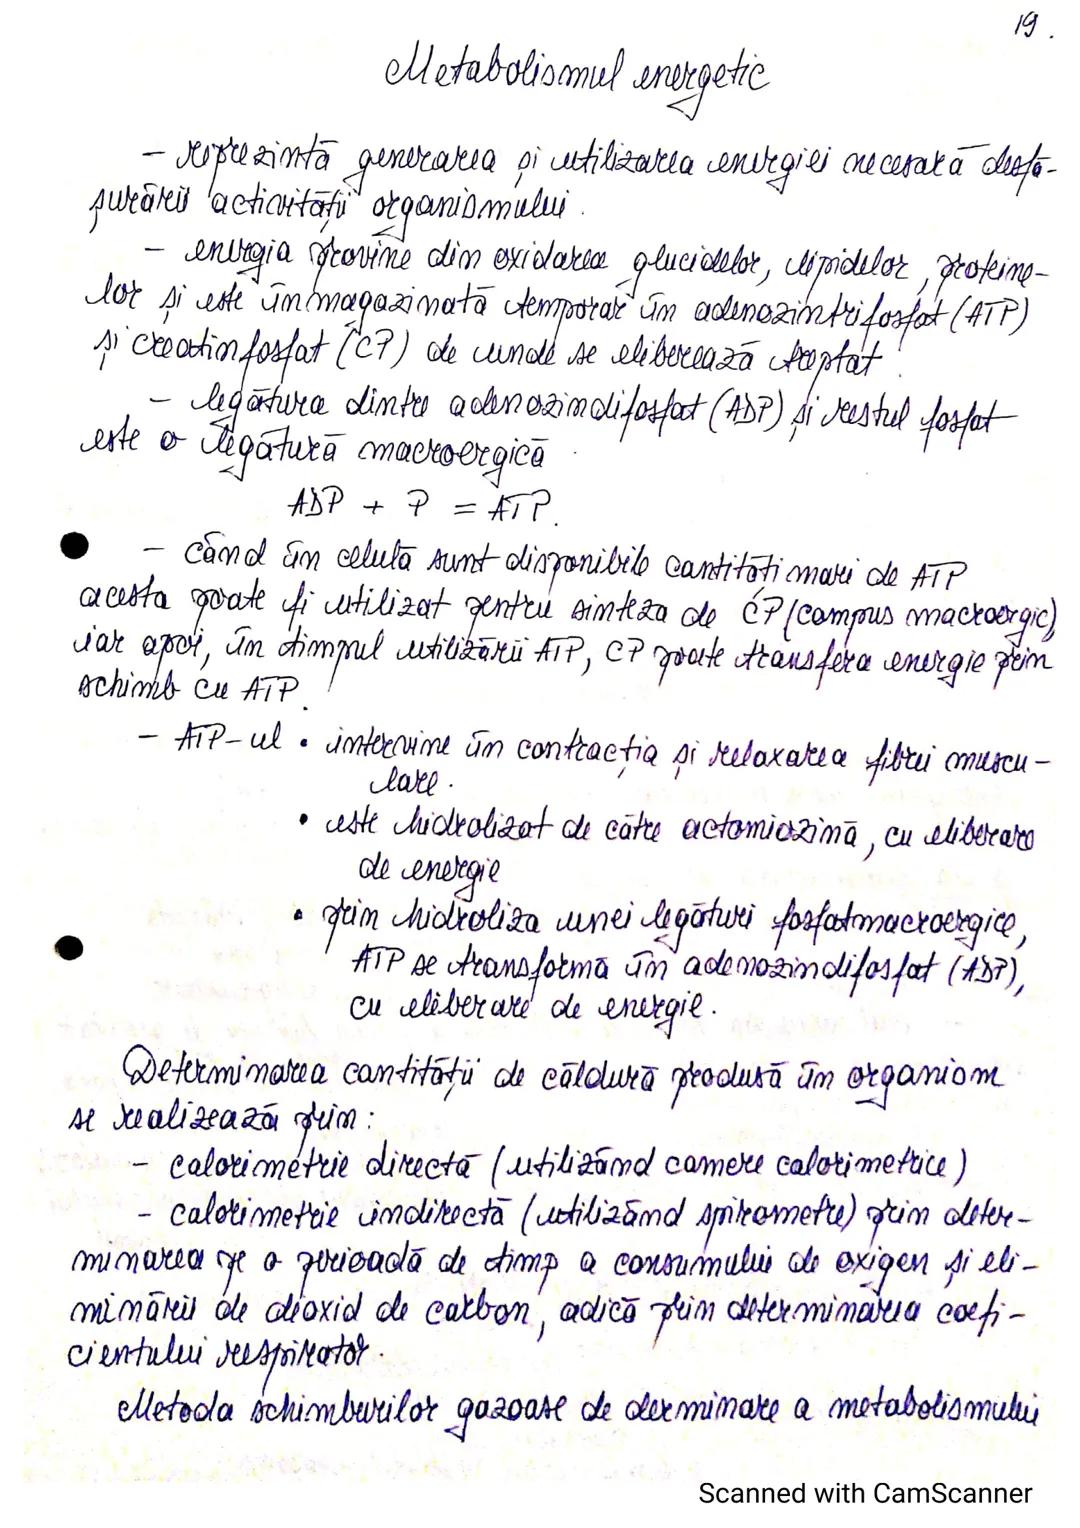 19.
Metabolismul energetic
- reprezintă generarea și utilizarea energiei necesară desfă-
șurării activității organismului.
- energia provine din oxidarea glucidelor, lipidelor, proteine-
lor și este înmagazinată temporar în adenozintrifosfat (ATP)
și creatinfosfat (CP) de unde se eliberează treptat.
- legătura dintre adenozindifosfat (ADP) și restul fosfat
este o legătură macroergică.
ADP + P = ATP.
- când în celulă sunt disponibile cantități mari de ATP
acesta poate fi utilizat pentru sinteza de CP (compus macroergic)
iar apoi, în timpul utilizării ATP, CP poate transfera energie prin
schimb cu ATP.
- ATP-ul • intervine în contracția și relaxarea fibrei muscu-
lare.
• este hidrolizat de către actomiozină, cu eliberare
de energie
• prin hidroliza unei legături fosfatmacroergice,
ATP se transformă în adenozindifosfat (ADP),
cu eliberare de energie.
Determinarea cantității de căldură produsă în organism
se realizează prin:
- calorimetrie directă (utilizând camere calorimetrice)
- calorimetrie indirectă (utilizând spirometre) prin deter-
minarea pe o perioadă de timp a consumului de oxigen și eli-
minării de dioxid de carbon, adică prin determinarea coefi-
cientului respirator.
Metoda schimburilor gazoase de derminare a metabolismului
Scanned with CamScanner